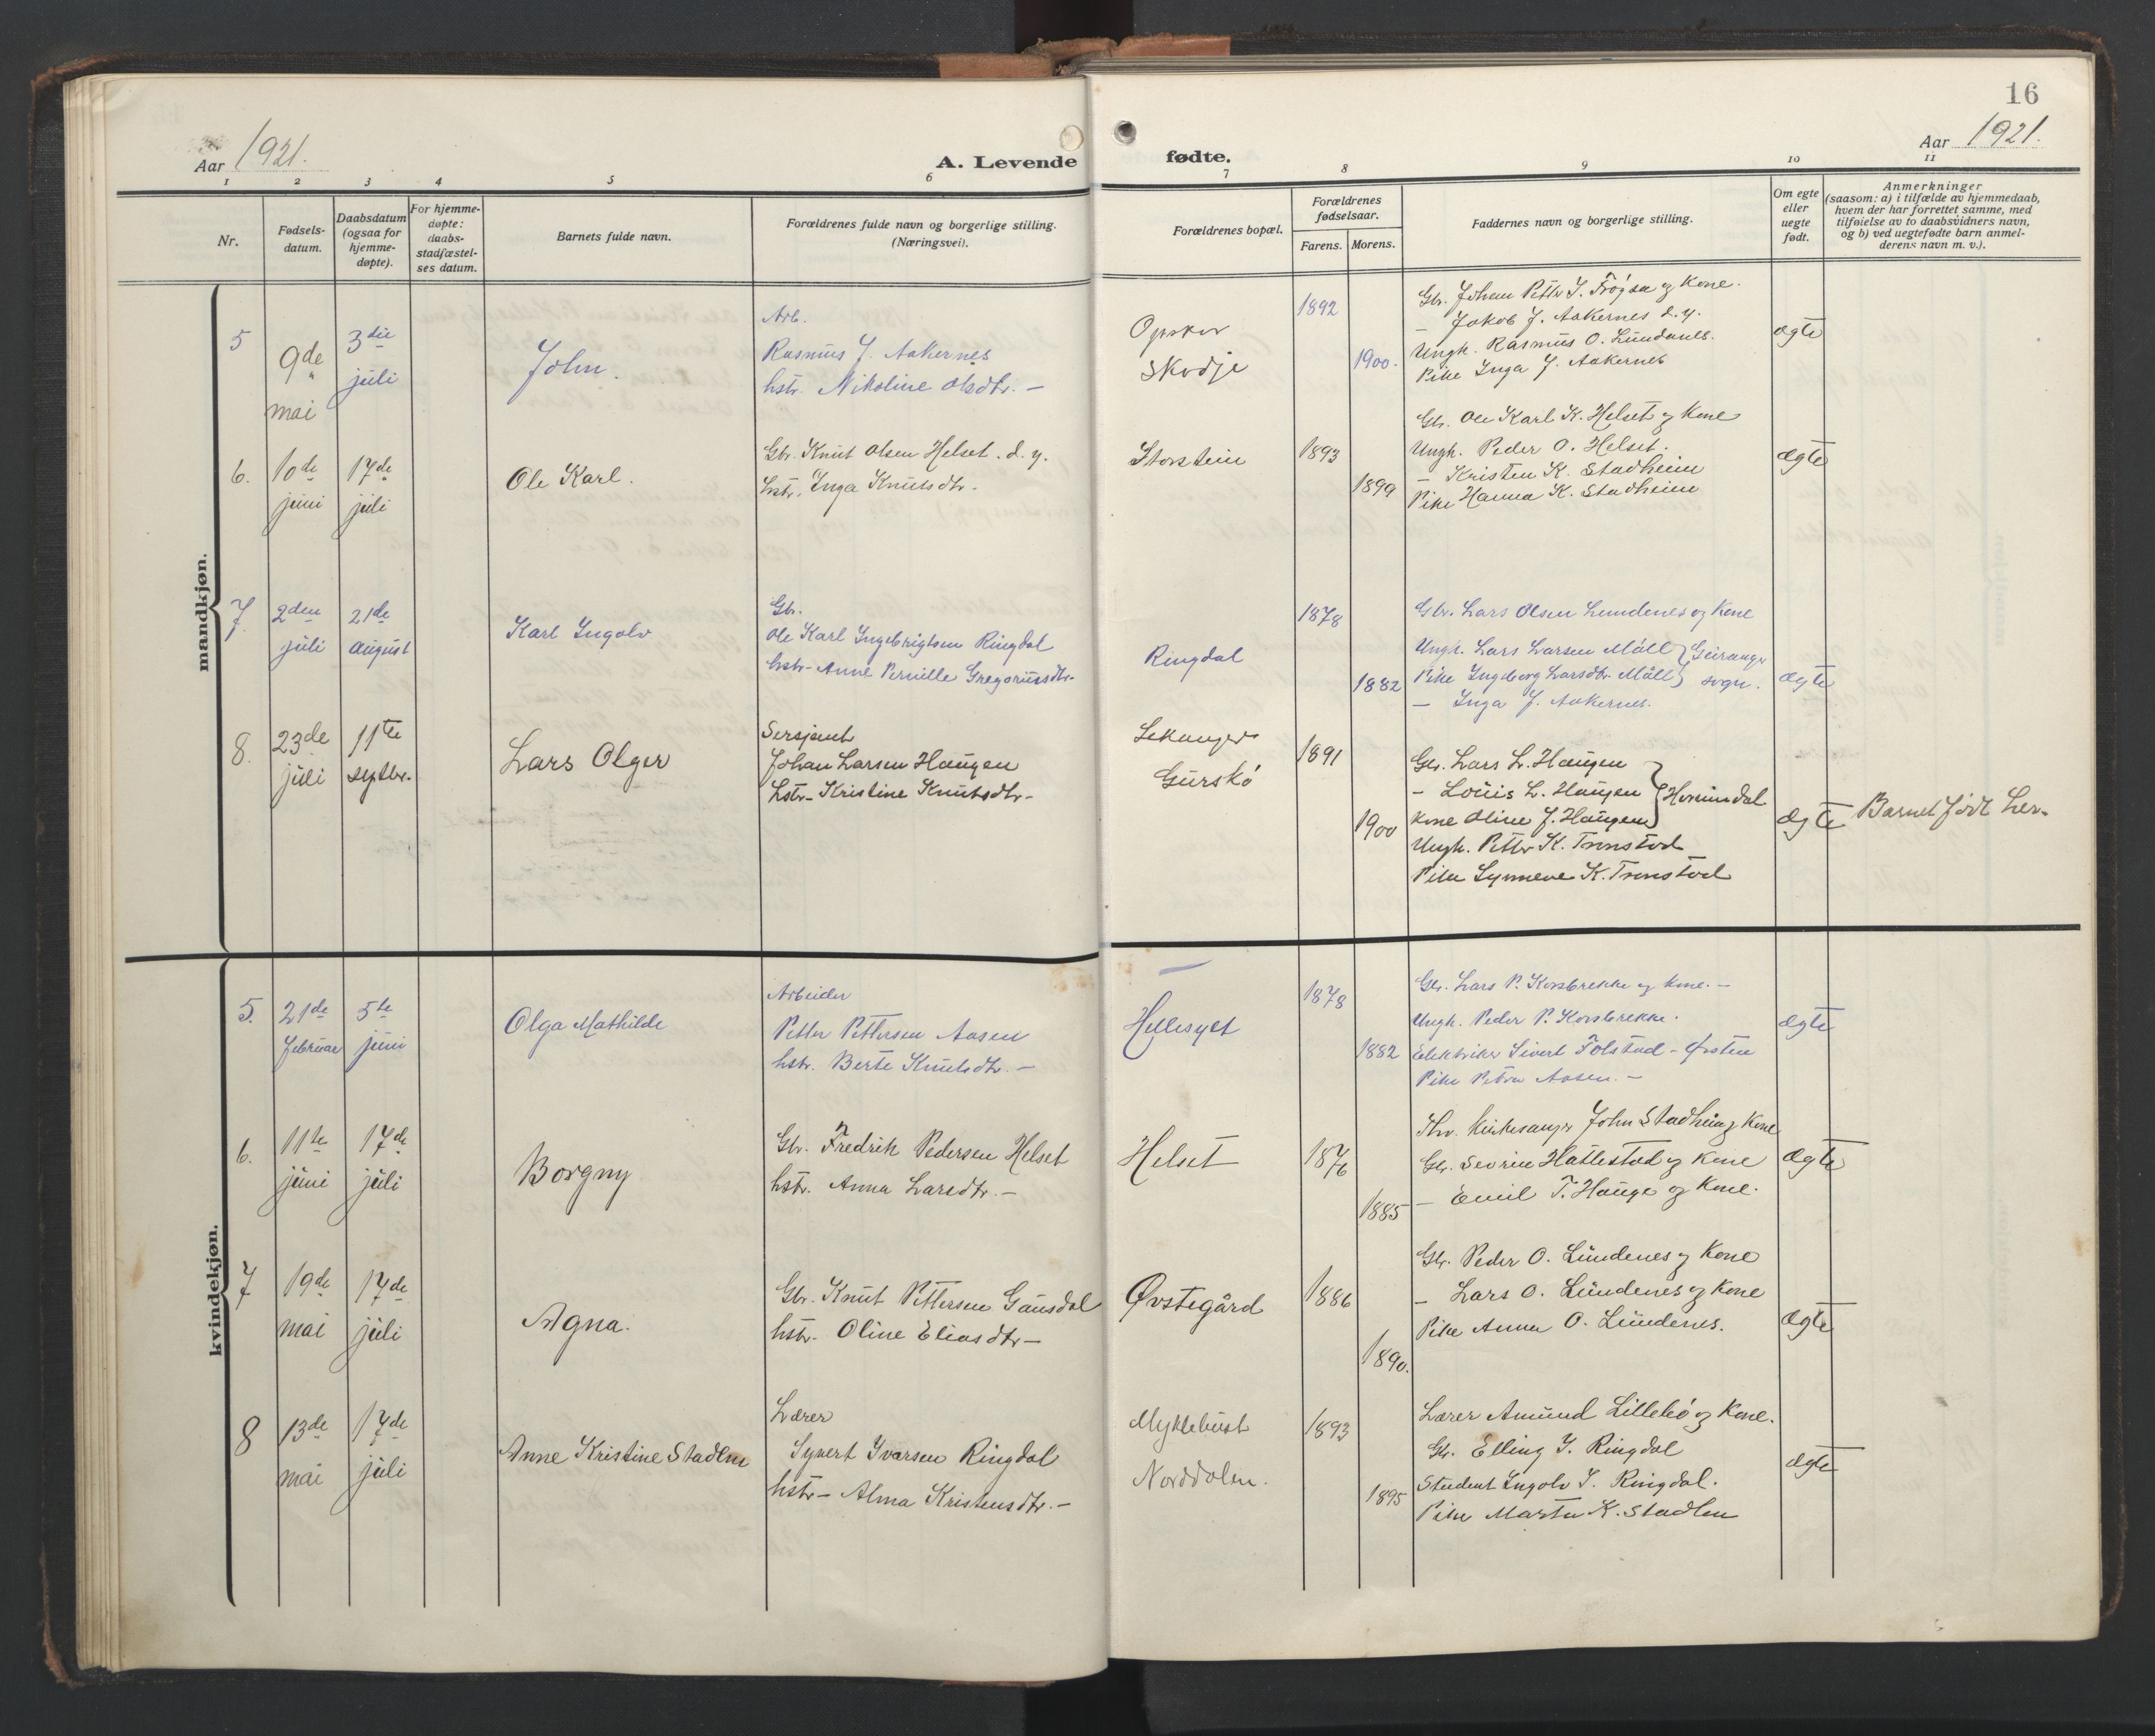 16
Aar 1921.
A. Levende fødte.
Aar 1921.
1 2 3 4 5 6 7 8 9 10 11
Nr.
Fødsels-
datum.
Daabsdatum
(ogsaa for
hjemme-
døpte).
For hjemme-
døpte:
daabs-
stadfæstel-
ses datum.
Barnets fulde navn.
Forældrenes fulde navn og borgerlige stilling.
(Næringsvei).
Forældrenes bopæl.
Forældrenes
fødselsaar.
Farens. Morens.
Faddernes navn og borgerlige stilling.
Om egte
eller
uegte
født.
Anmerkninger
(saasom: a) i tilfælde av hjemmedaab,
hvem der har forrettet samme, med
tilføielse av to daabsvidners navn,
og b) ved uegtefødte barn anmel-
derens navn m. v.).
mandkjøn.
5
9de
mai
3die
juli
John.
Arb.
Rasmus J. Aakernes
hstr. Nikoline Olsdtr. —
Skodje
1892
1900.
Gbr. Johan Petter J. og Kone.
— Jakob J. Aakernes d. y.
Ungk. Rasmus O. Lundanes.
Pike Inga J. Aakernes
ægte
6.
10de
juni
17de
juli
Ole Karl.
Gbr. Knut Olsen Helset. d. y.
hstr. Inga Knutsdtr.
Storstein
1893
1899
Gbr. Ole Karl K. Helset og Kone
Ungk. Peder O. Helset.
— Kristen K. Stadheim
Pike Hanna K. Stadheim
ægte
7.
2den
juli
21de
august
Karl Ingolv
Gbr.
Ole Karl Ingebrigtsen Ringdal
hstr. Anne Pernille Gregoriusdtr.
Ringdal
1878
1882
Gbr. Lars Olsen Lundenes og Kone
Ungk. Lars Larsen Möll } Geiranger
Pike Ingeborg Larsdtr Möll } sogn.
— Inga J. Aakernes.
ægte
8.
23de
juli
11te
septbr.
Lars Olger
Sersjant
Johan Larsen Haugen
hstr. Kristine Knutsdtr.
Gurskö
1891
1900
Gbr. Lars L. Haugen
— Louis L. Haugen } Hornindal
Kone Oline J. Haugen
Ungk. Petter K. Tronstad
Pike Synneve K. Tronstad
ægte
Barnet født her.
kvindekjøn.
5.
21de
februar
5te
juni
Olga Mathilde
Arbeider
Petter Pettersen Aasen
hstr. Berte Knutsdtr. —
Hellesylt
1878
1882
Gbr. Lars P. Korsbrekke og kone. —
Ungk. Peder P. Korsbrekke.
Elektriker Sivert Folstad — Ørsten
Pike Petra Aasen. —
ægte
6.
11te
juni
17de
juli
Borgny
Gbr. Fredrik Pedersen Helset
hstr. Anna Larsdtr. —
Helset
1876
1885
Fhv. kirkesanger John Stadheim og Kone
Gbr. Severin Hattestad og Kone
— Emil T. Hauge og Kone.
ægte
7
19de
mai
17de
juli
Agna.
Gbr. Knut Pettersen Gausdal
hstr. Oline Eliasdtr —
Øvstegård
1886
1890.
Gbr. Peder O. Lundenes og Kone
— Lars O. Lundenes og Kone
Pike Anna O. Lundenes.
ægte
8
13de
mai
17de
juli
Anne Kristine Stadlen
Lærer
Syvert Ivarsen Ringdal
hstr — Alma Kristensdtr. —
Myklebust
Norddalen.
1893
1895
Lærer Amund Lillebö og Kone.
Gbr. Elling I. Ringdal
Student Ingolv I. Ringdal.
Pike Marta K. Stadlen
ægte